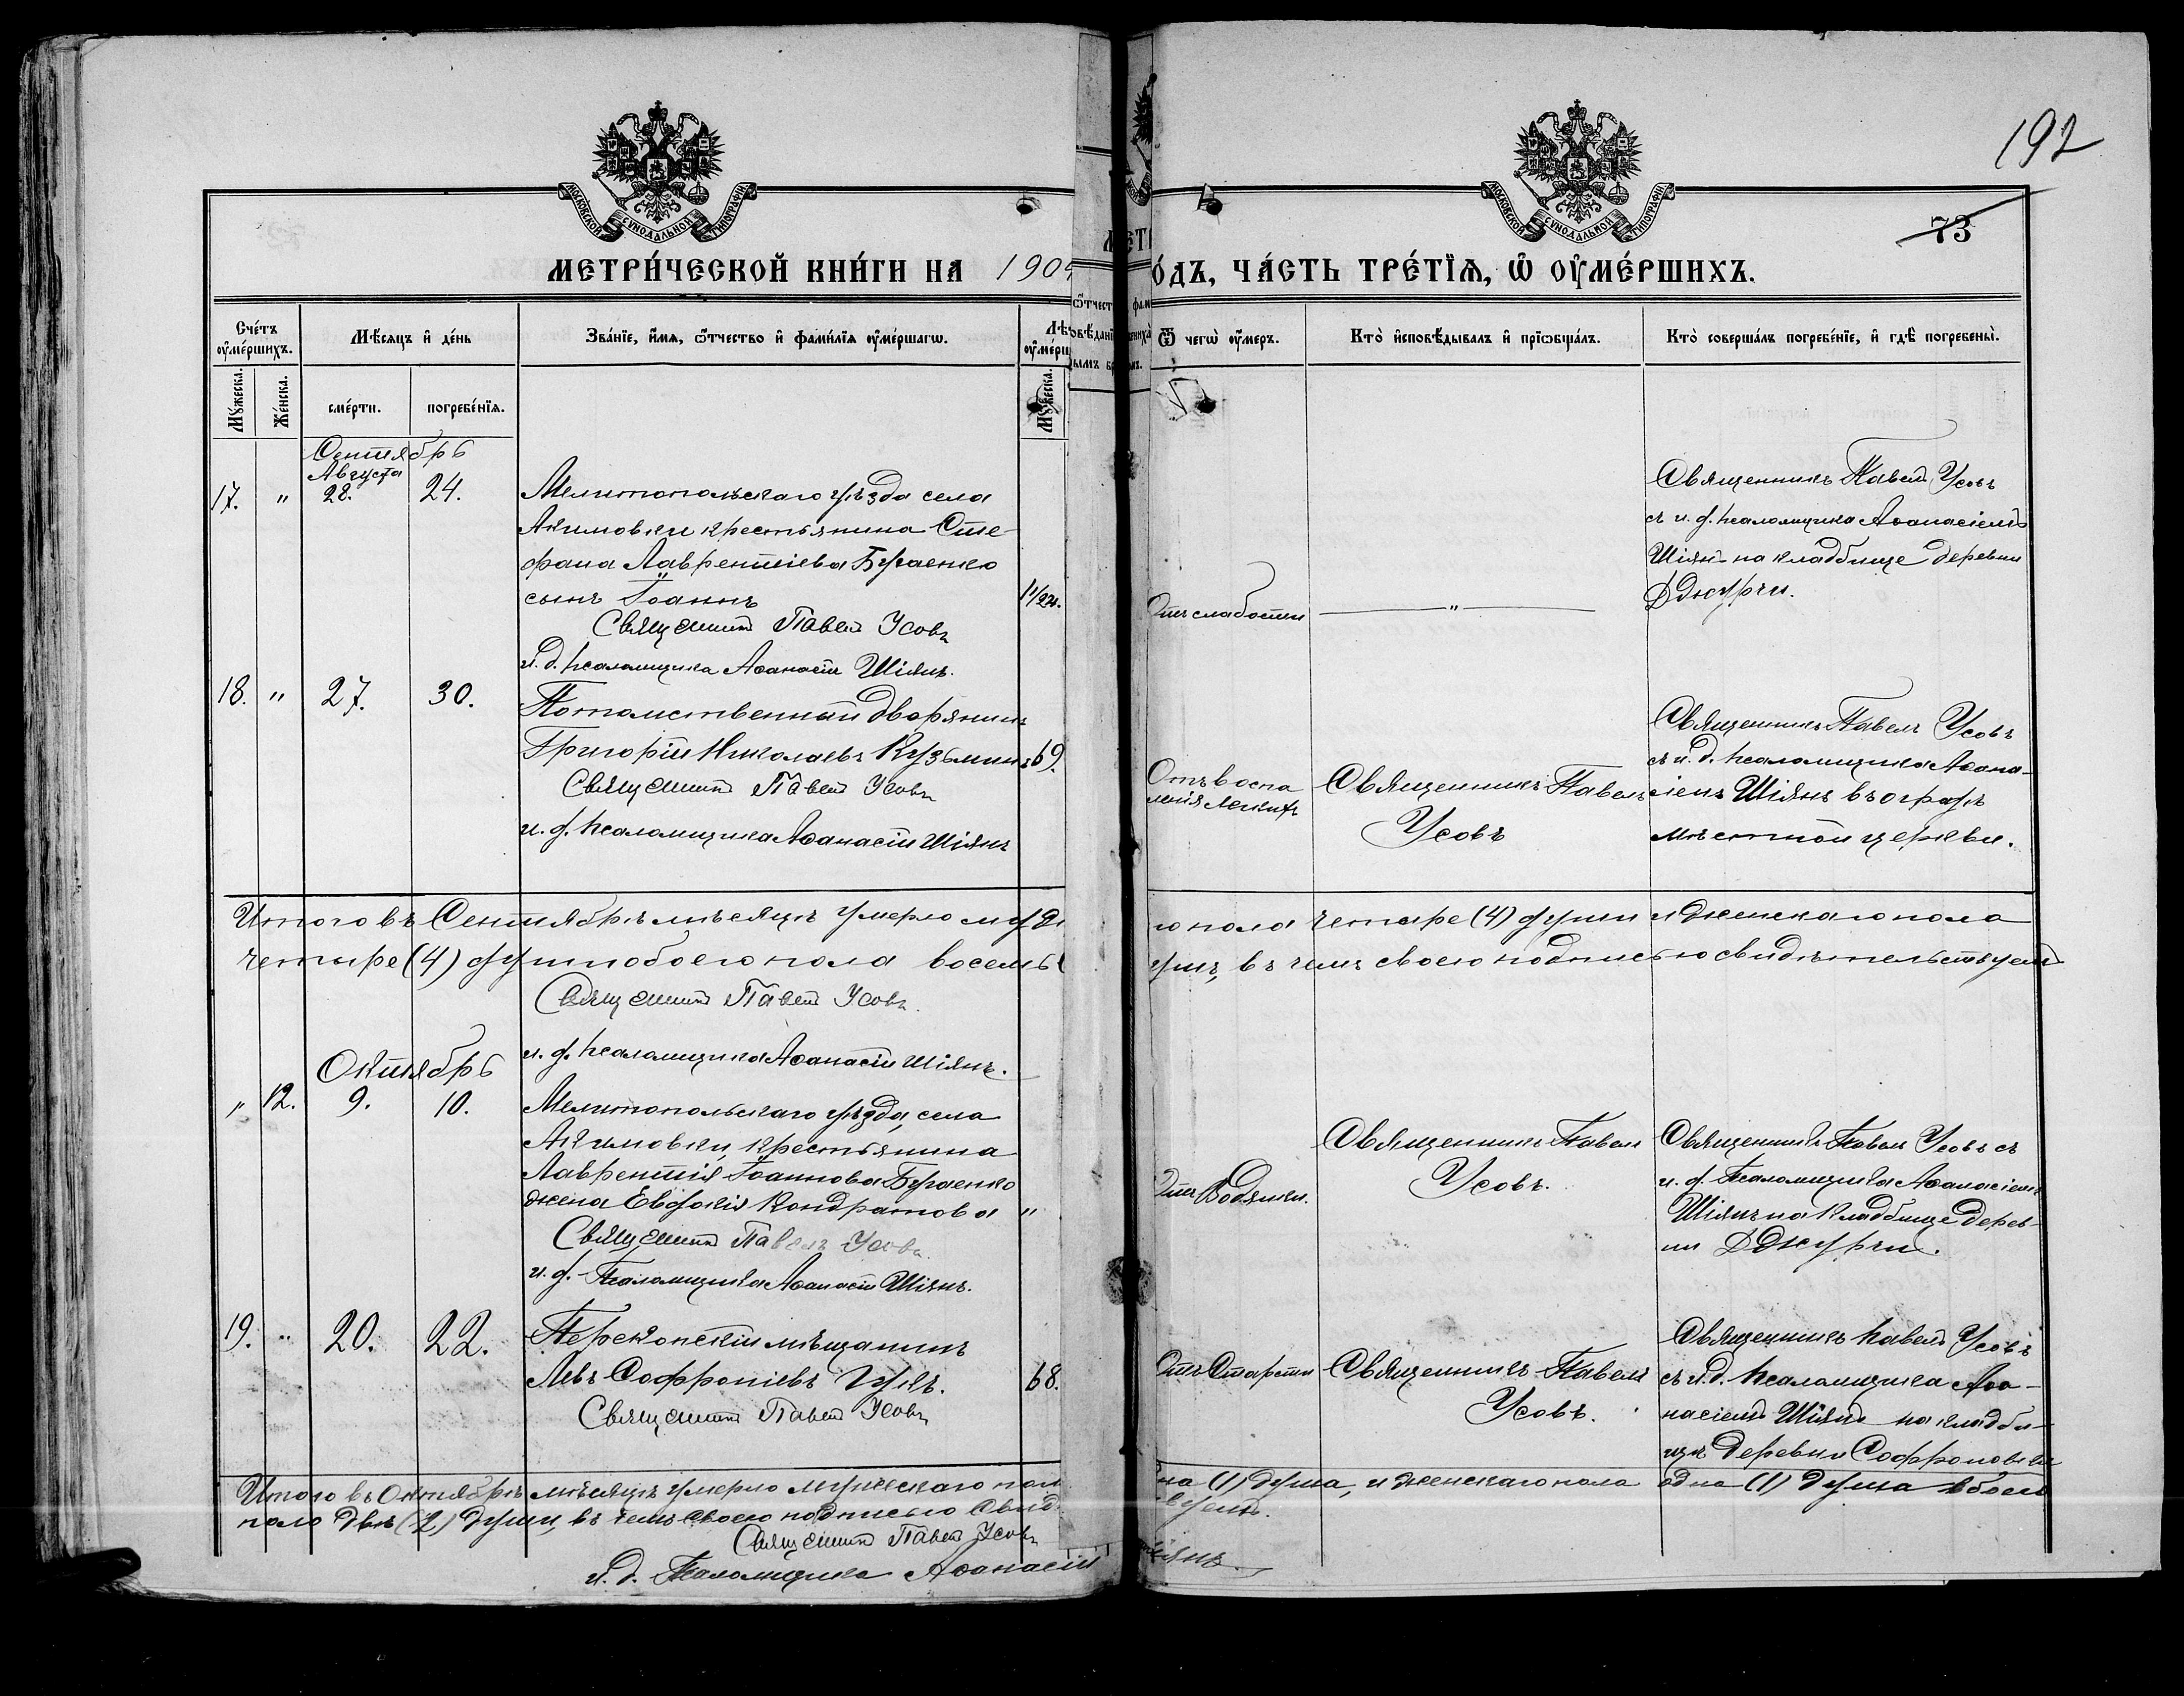 192
73
МОСКОВСКОЙ СѴНОДАЛЬНОЙ ТИПОГРАФІИ
МОСКОВСКОЙ СѴНОДАЛЬНОЙ ТИПОГРАФІИ
МЕТРИ́ЧЕСКОЙ КНИ́ГИ НА 190
О́ДЪ, ЧА́СТЬ ТРЕ́ТІѦ, Ѿ ОУ҆МЕ́РШИХЪ.
Сче́тъ оу҆ме́ршихъ.
Мѣ́сяцъ и҆ де́нь
Зва́ніе, и҆́мя, ѻ҆́тчество и҆ фами́лїя оу҆ме́ршагѡ.
Мꙋ́жеска.
Же́нска.
сме́рти.
погребе́нїя.
Мꙋ́жеска.
Ѿ чегѡ̀ оу҆́меръ.
Кто̀ и҆сповѣ́дывалъ и҆ прїѡбща́лъ.
Кто̀ соверша́лъ погребе́нїе, и҆ гдѣ̀ погребены̀.
Сентябрь
Августа
17. " 28. 24. Мелитопольскаго уѣзда села
Акимовки крестьянина Сте-
фана Лаврентіева Бугаенко
сынъ Іоаннъ 11/22.
Священникъ Павелъ Усовъ
и. д. псаломщика Аѳанасій Шіянъ.
Отъ слабости "
Священникъ Павелъ Усовъ
съ и. д. псаломщика Аѳанасіемъ
Шіянъ на кладбище деревни
Джурчи.
18. " 27. 30. Потомственный дворянинъ
Григорій Николаевъ Кузьминъ 69.
Священникъ Павелъ Усовъ
и. д. псаломщика Аѳанасій Шіянъ
Отъ воспа
ленія легкихъ
Священникъ Павелъ
Усовъ
Священникъ Павелъ Усовъ
съ и. д. псаломщика Аѳана-
сіемъ Шіянъ въ оградѣ
мѣстной церкви.
Итого въ Сентябрѣ мѣсяцѣ умерло муж
го пола четыре (4) души и женскаго пола
четыре (4) души обоего пола восемь (
душъ, въ чемъ своею подписью свидѣтельствуемъ
Священникъ Павелъ Усовъ.
и. д. псаломщика Аѳанасій Шіянъ.
Октябрь
" 12. 9. 10. Мелитопольскаго уѣзда, села
Акимовки, крестьянина
Лаврентія Іоаннова Бугаенко
жена Евдокія Кондратова "
Священникъ Павелъ Усовъ.
и. д. Псаломщика Аѳанасій Шіянъ.
Отъ Водянки.
Священникъ Павелъ
Усовъ.
Священникъ Павелъ Усовъ съ
и. д. Псаломщика Аѳанасіемъ
Шіянъ на кладбище дерев-
ни Джурчи.
19. " 20. 22. Перекопскій мѣщанинъ
Левъ Софроніевъ 68.
Священникъ Павелъ Усовъ
Отъ Старости
Священникъ Павелъ
Усовъ.
Священникъ Павелъ Усовъ
съ и. д. псаломщика Аѳа-
насіемъ Шіянъ на кладби-
щѣ деревни Софроновки
Итого въ Октябрѣ мѣсяцѣ умерло мужескаго пол
на (1) душа, и женскаго пола одна (1) душа обоего
пола двѣ (2) души, въ чемъ своею подписью свид
вуемъ.
Священникъ Павелъ Усовъ
и. д. Псаломщика Аѳанасій
іянъ.